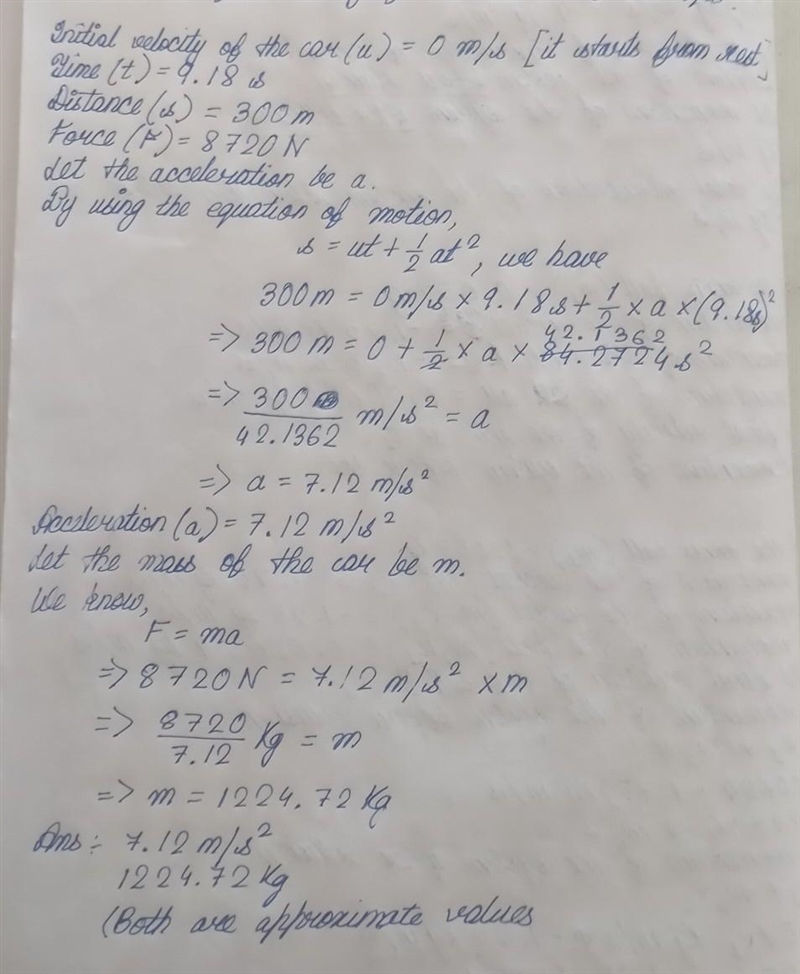 Initial velocity of the car (u) = 0 m/s [it starts from rest]
Time (t) = 9.18 s
Distance (s) = 300 m
Force (F) = 8720 N
Let the acceleration be a.
By using the equation of motion,
s = ut + 1/2 at², we have
300 m = 0 m/s × 9.18 s + 1/2 × a × (9.18s)²
=> 300 m = 0 + 1/2 × a × 84.2724 s²
42.1362
=> 300/42.1362 m/s² = a
=> a = 7.12 m/s²
Acceleration (a) = 7.12 m/s²
Let the mass of the car be m.
We know,
F = ma
=> 8720 N = 7.12 m/s² × m
=> 8720/7.12 Kg = m
=> m = 1224.72 Kg
Ans :- 7.12 m/s²
1224.72 Kg
(Both are approximate values